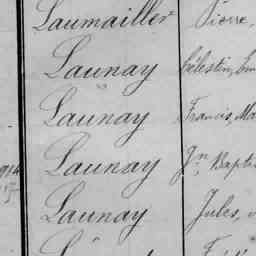 Laumailler Pierre,
Launay Célestin, Em
Launay Francis, Ma
Launay Jn Bapti
Launay Jules,